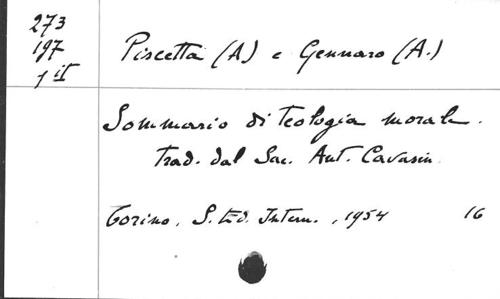 273
197
1 it
Piscetta (A) e Gennaro (A.)
Sommario di teologia morale.
trad. dal Sac. Ant. Cavasin
Torino, S. Ed. Intern., 1954 16